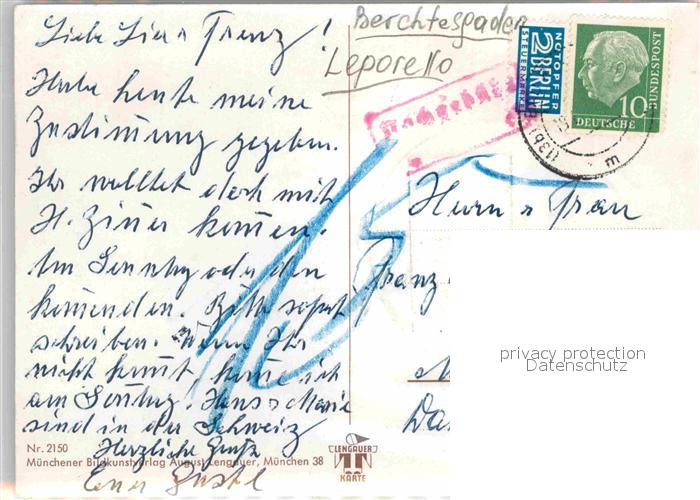 Berchtesgaden
Leporello
Liebe Lina Franz!
Habe heute meine
Zustimmung gegeben.
Ihr wolltet doch mit
H. Ziner kommen.
Am Sonntag oder den
kommenden. Bitte sofort
schreiben. Wenn Ihr
nicht kommt, komme ich
am Sonntag. Hans & Marie
sind in der Schweiz
Herzliche Grüße
Euer Gustl
NOTOPFER
2 BERLIN
STEUERMARKE
10
DEUTSCHE
BUNDESPOST
(13b)
Nachgebühr
15
Herrn & Frau
Franz
privacy protection
Datenschutz
Nr. 2150
Münchener Bildkunstverlag August Lengauer, München 38
LENGAUER
KARTE